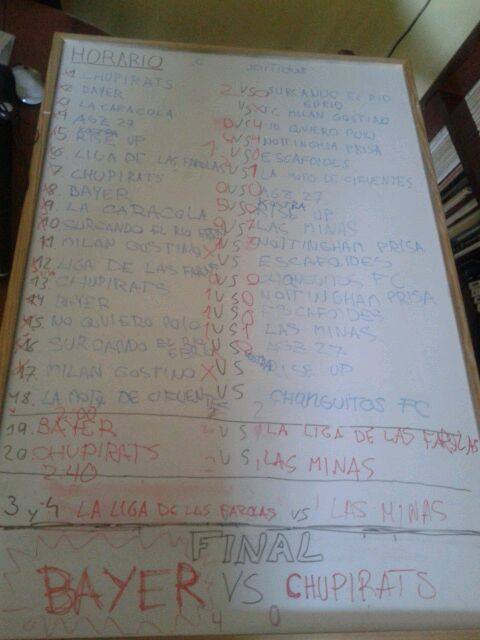 HORARIO
1. CHUPIRATS 2 VS 0 SURCANDO EL RIO EBRIO
2. BAYER VS X FC MILAN GOSTINO
3. LA CARACOLA VS 4 YO QUIERO POLO
4. AGZ 27 VS 4 NOTTINGHAM PRISA
5. RISE UP 1 VS 0 ESCAFOIDES
6. LIGA DE LAS FAROLAS VS 1 LA MOTO DE CIFUENTES
7. CHUPIRATS 0 VS 0 AGZ 27
8. BAYER 5 VS 0 RISE UP
9. LA CARACOLA VS LAS MINAS
10. SURCANDO EL RIO VS NOTTINGHAM PRISA
11. MILAN GOSTINO X VS ESCAFOIDES
12. LIGA DE LAS VS 0 CHANGUITOS FC
13. CHUPIRATS 1 VS 0 NOTTINGHAM PRISA
14. BAYER VS 0 ESCAFOIDES
15. NO QUIERO POLO 1 VS 1 LAS MINAS
16. SURCANDO EL RIO EBRIO VS AGZ 27
17. MILAN GOSTINO X VS RISE UP
18. LA MOTO DE CIFUENTES VS CHANGUITOS FC
19. BAYER VS LA LIGA DE LAS FAROLAS
20. CHUPIRATS VS LAS MINAS
2:40
3 y 4 LA LIGA DE LAS FAROLAS VS 1 LAS MINAS
FINAL
BAYER VS CHUPIRATS
4 0